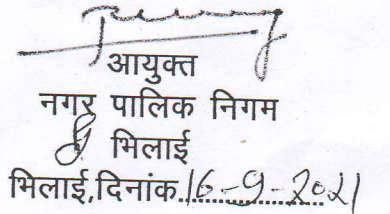 आयुक्त
नगर पालिक निगम
भिलाई
भिलाई,दिनांक.16-9-2021